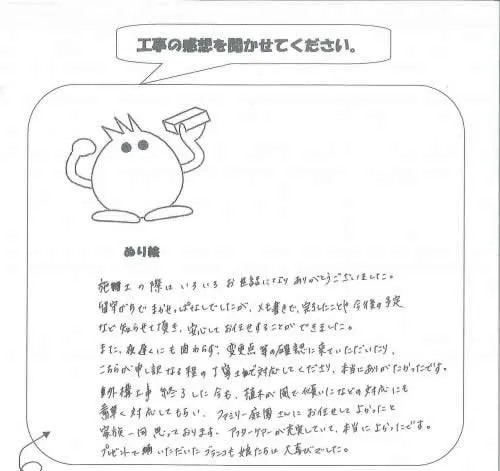 工事の感想を聞かせてください。
ぬり絵
施工の際はいろいろお世話になり ありがとうございました。
留守がちで まかせっぱなしでしたが、メモ書きで、完了したことや今後の予定
など知らせて頂き、安心してお任せすることができました。
また、夜遅くにも関わらず、変更点等の確認に来ていただいたり、
こちらが申し訳なる程の丁寧さで対応してくださり、本当にありがたかったです。
外構工事 終了した今も、植木が風で傾いたなどの対応にも
素早く対応してもらい、ファミリー庭園さんにお任せしてよかったと
家族一同思っております。アフターケアーが充実していて、本当によかったです。
プレゼントで頂いただいたブランコも娘たちは大喜びでした。